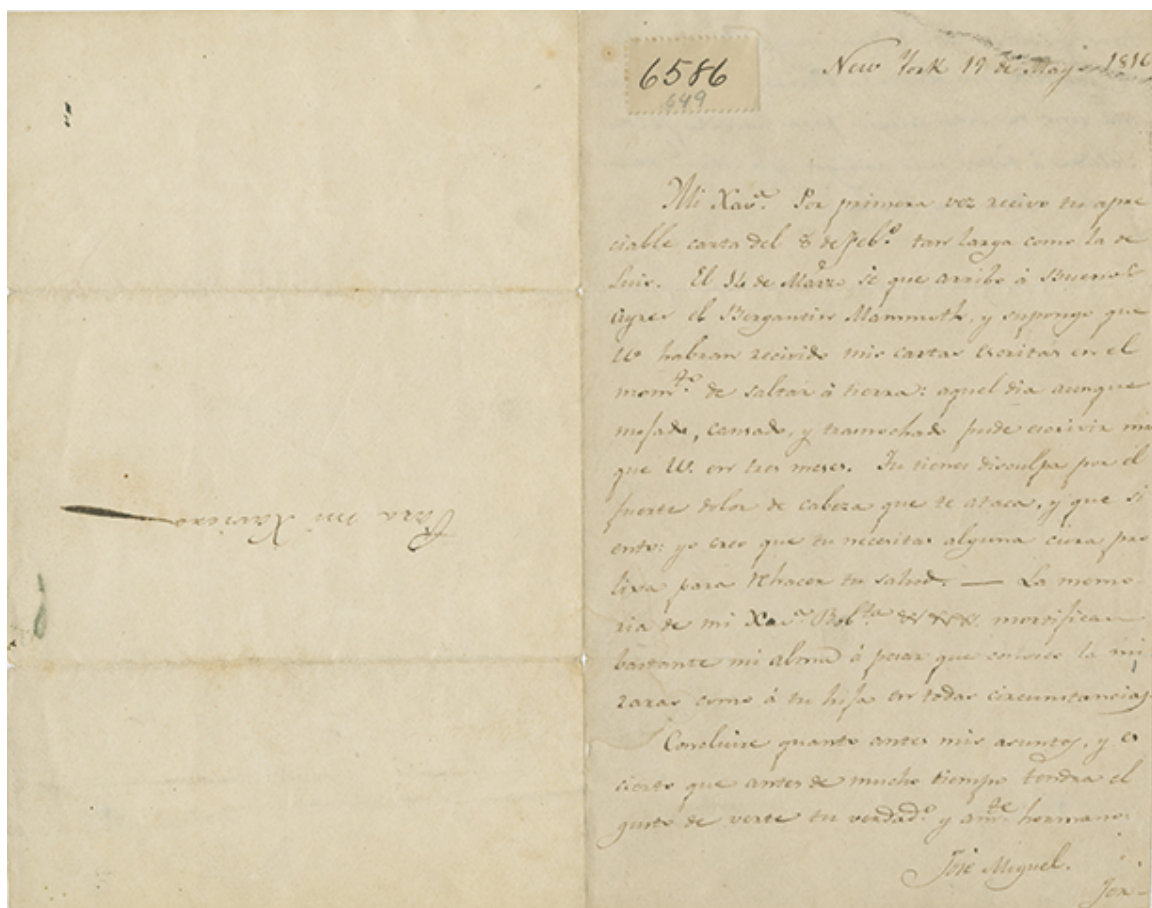 6586
649
New York 19 de Mayo 1816
Mi Xav.a Por primera vez recivo tu apre
ciable carta del 8 de Feb.o tan larga como la de
Luis. El 14 de Marzo se que arribo á Buenos
Ayres el Bergantin Mammoth, y supongo que
W habran recivido mis cartas escritas en el
mom.to de saltar á tierra: aquel dia aunque
mojado, cansado, y trasnochado pude escrivir mas
que W. en tres meses. Tu tienes disculpa por el
fuerte dolor de cabeza que te ataca, y que si
ento: yo creo que tu necesitas alguna cura pro
lixa para rehacer tu salud. — La memo
ria de mi Xav.a mortifican
bastante mi alma á pesar que conosco la mi
raras como á tu hija en todas circunstancias.
Concluire quanto antes mis asuntos, y es
cierto que antes de mucho tiempo tendra el
gusto de verte tu verdad.o y am.te hermano.
José Miguel.
Para mi Xaviera